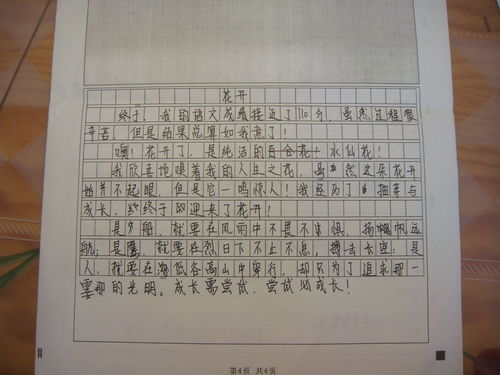 花开
终于,我的语文成绩接近了110分,虽然过程很
辛苦,但是结果总算如我意了!
噢!花开了,是纯洁的百合花!水仙花!
我欣喜地嗅着我的人生之花,虽然这朵花开
始并不起眼,但是它一鸣惊人!我经历了挫辱与
成长,终于迎来了花开!
是船,就要在风雨中不畏不惧,扬帆远
航;是鹰,就要在烈日下不止不息,搏击长空;是
人,就要在低谷高山中穿行,却只为了追求那一
霎那的光明。成长需尝试,尝试必成长!
第4页 共4页